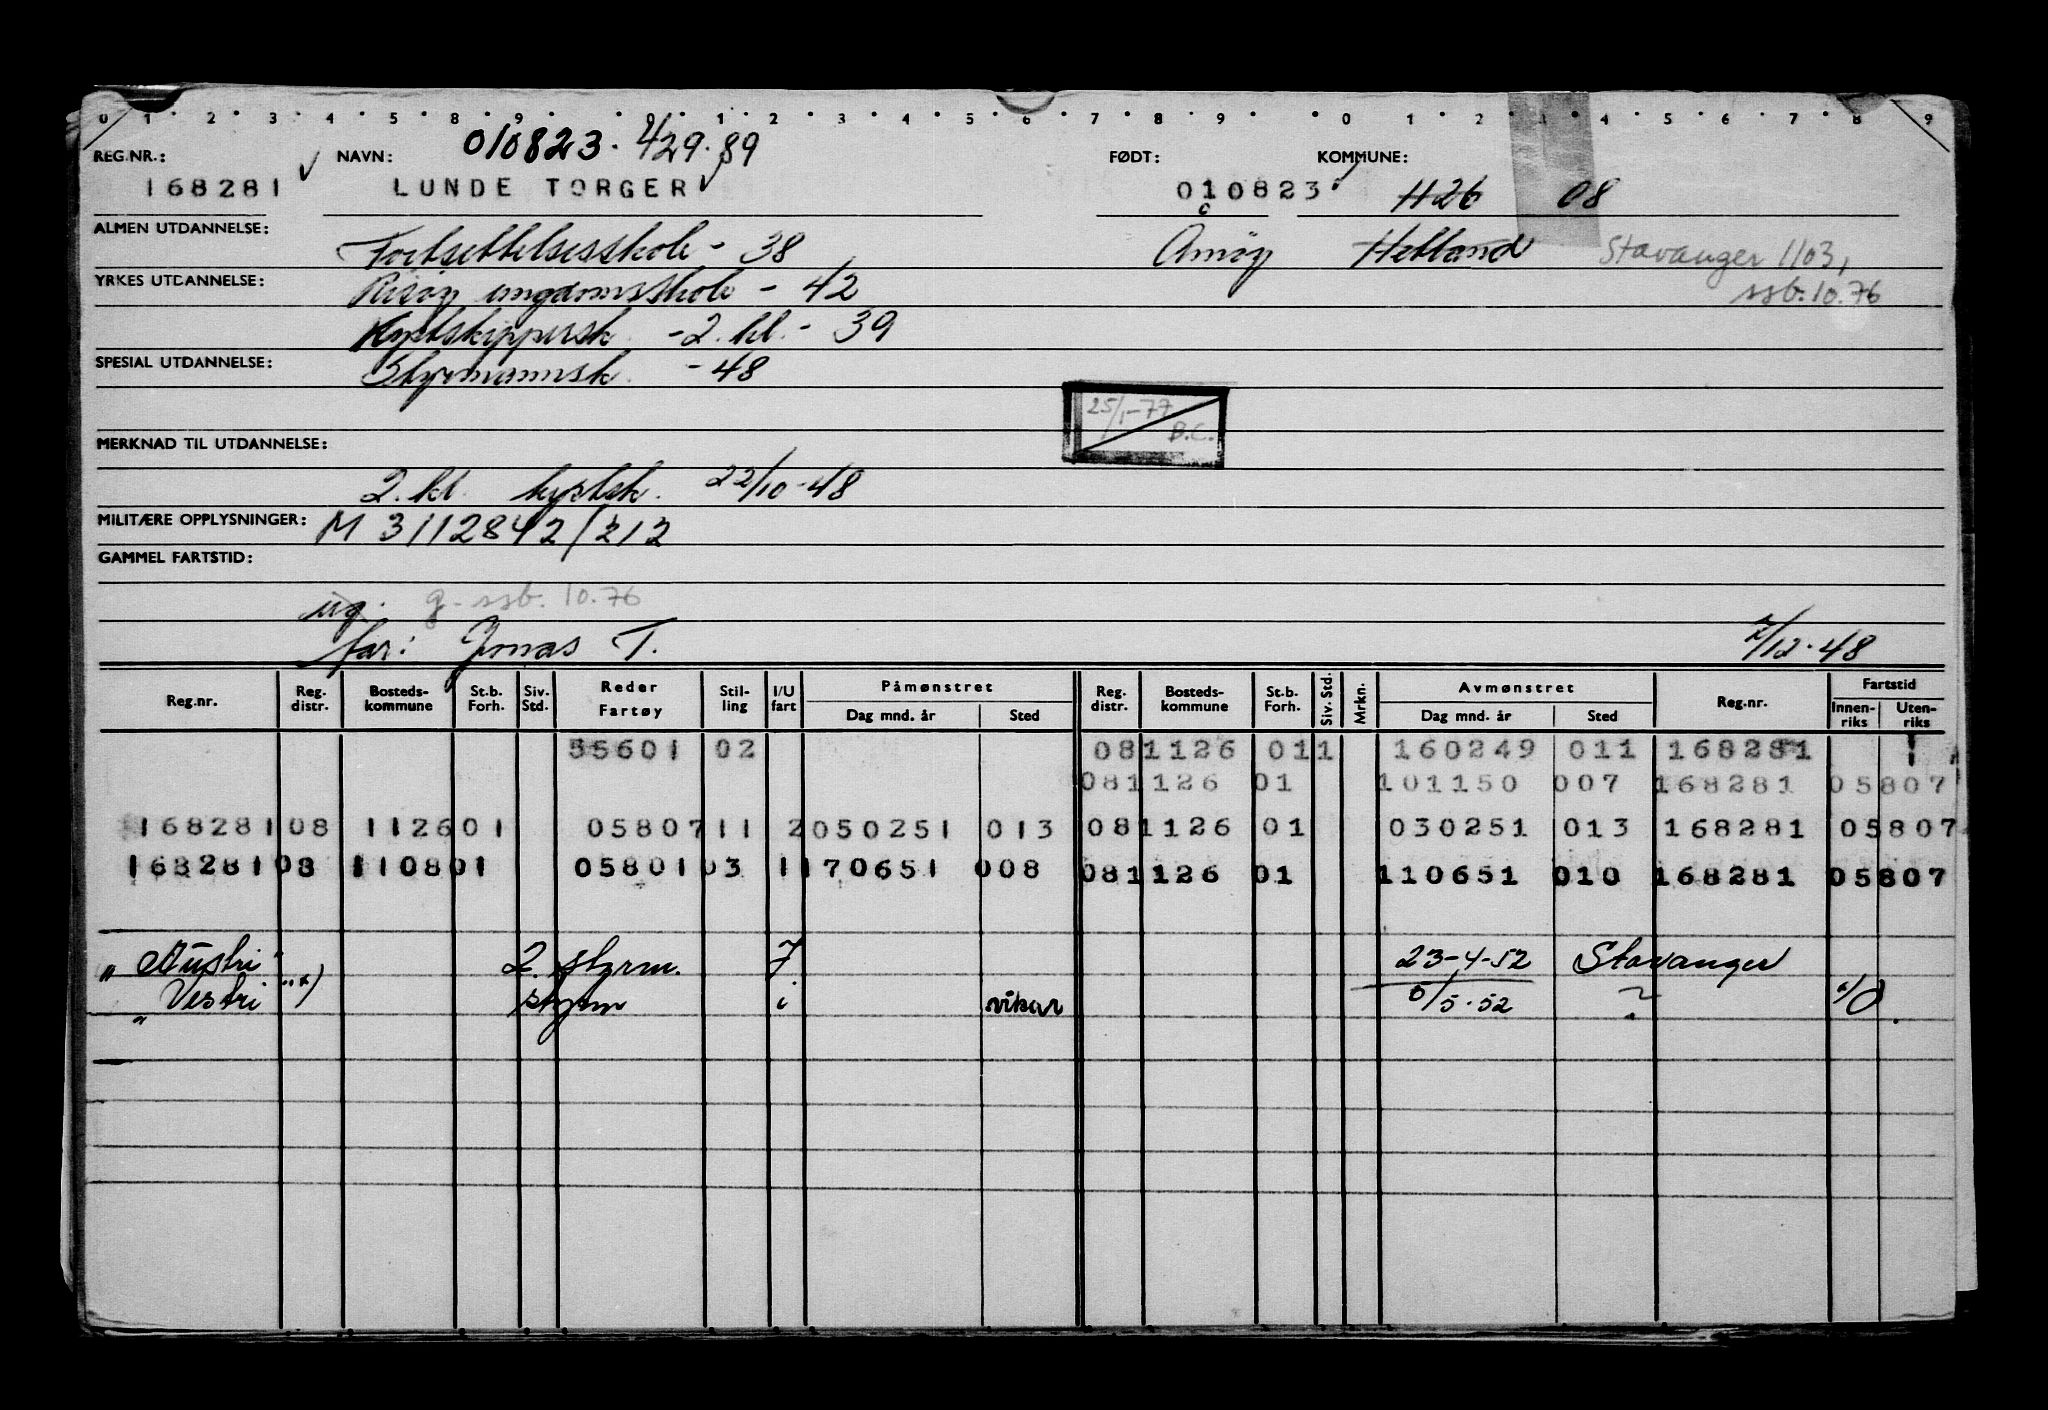 0 1 2 3 4 5 8 9 0 1 2 3 4 5 6 7 8 9 0 1 2 3 4 5 6 7 8 9
010823.429.89
REG.NR.: NAVN: FØDT: KOMMUNE:
168281 LUNDE TORGER 010823 1126 08
ALMEN UTDANNELSE: Fortsettelsesskole - 38 Amøy Hetland Stavanger 1103,
YRKES UTDANNELSE: Risøy ungdomsskole - 42 ssb. 10.76
Kystskippersk. - 2. kl. - 39
SPESIAL UTDANNELSE: Styrmannsk. - 48
25/1-77 B.C.
MERKNAD TIL UTDANNELSE:
2. kl. kystsk. 22/10-48
MILITÆRE OPPLYSNINGER: M 3112842/212
GAMMEL FARTSTID:
ug. g. ssb. 10.76
far: Jonas T. 7/12-48
Reg.nr. Reg. distr. Bosteds-kommune St.b. Forh. Siv. Std. Reder Fartøy Stil-ling I/U fart Påmønstret Dag mnd. år Sted Reg. distr. Bosteds-kommune St.b. Forh. Siv. Std. Mrkn. Avmønstret Dag mnd. år Sted Reg.nr. Fartstid Innen-riks Uten-riks
55601 02 081126 011 160249 011 168281
081126 01 101150 007 168281 05807
168281 08 112601 05807 11 2 050251 013 081126 01 030251 013 168281 05807
168281 08 110801 05801 03 1 170651 008 081126 01 110651 010 168281 05807
"Austri" 2. styrm. 23-4-52 Stavanger
"Vestri" styrm i vikar 5/5-52 ?